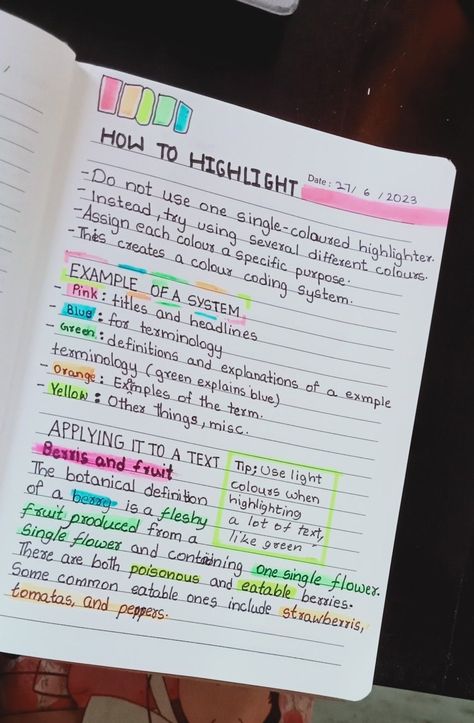 HOW TO HIGHLIGHT
Date: 27/6/2023
- Do not use one single-coloured highlighter.
- Instead, try using several different colours.
- Assign each colour a specific purpose.
- This creates a colour coding system.
EXAMPLE OF A SYSTEM
- Pink: titles and headlines
- Blue: for terminology
- Green: definitions and explanations of a exmple
terminology (green explains blue)
- Orange: Exmples of the term.
- Yellow: Other things, misc.
APPLYING IT TO A TEXT
Berris and fruit
The botanical definition
of a berry is a fleshy
fruit produced from a
single flower and contining one single flower.
There are both poisonous and eatable berries.
Some common eatable ones include strawberris,
tomatas, and peppers.
Tip: Use light
colours when
highlighting
a lot of text,
like green